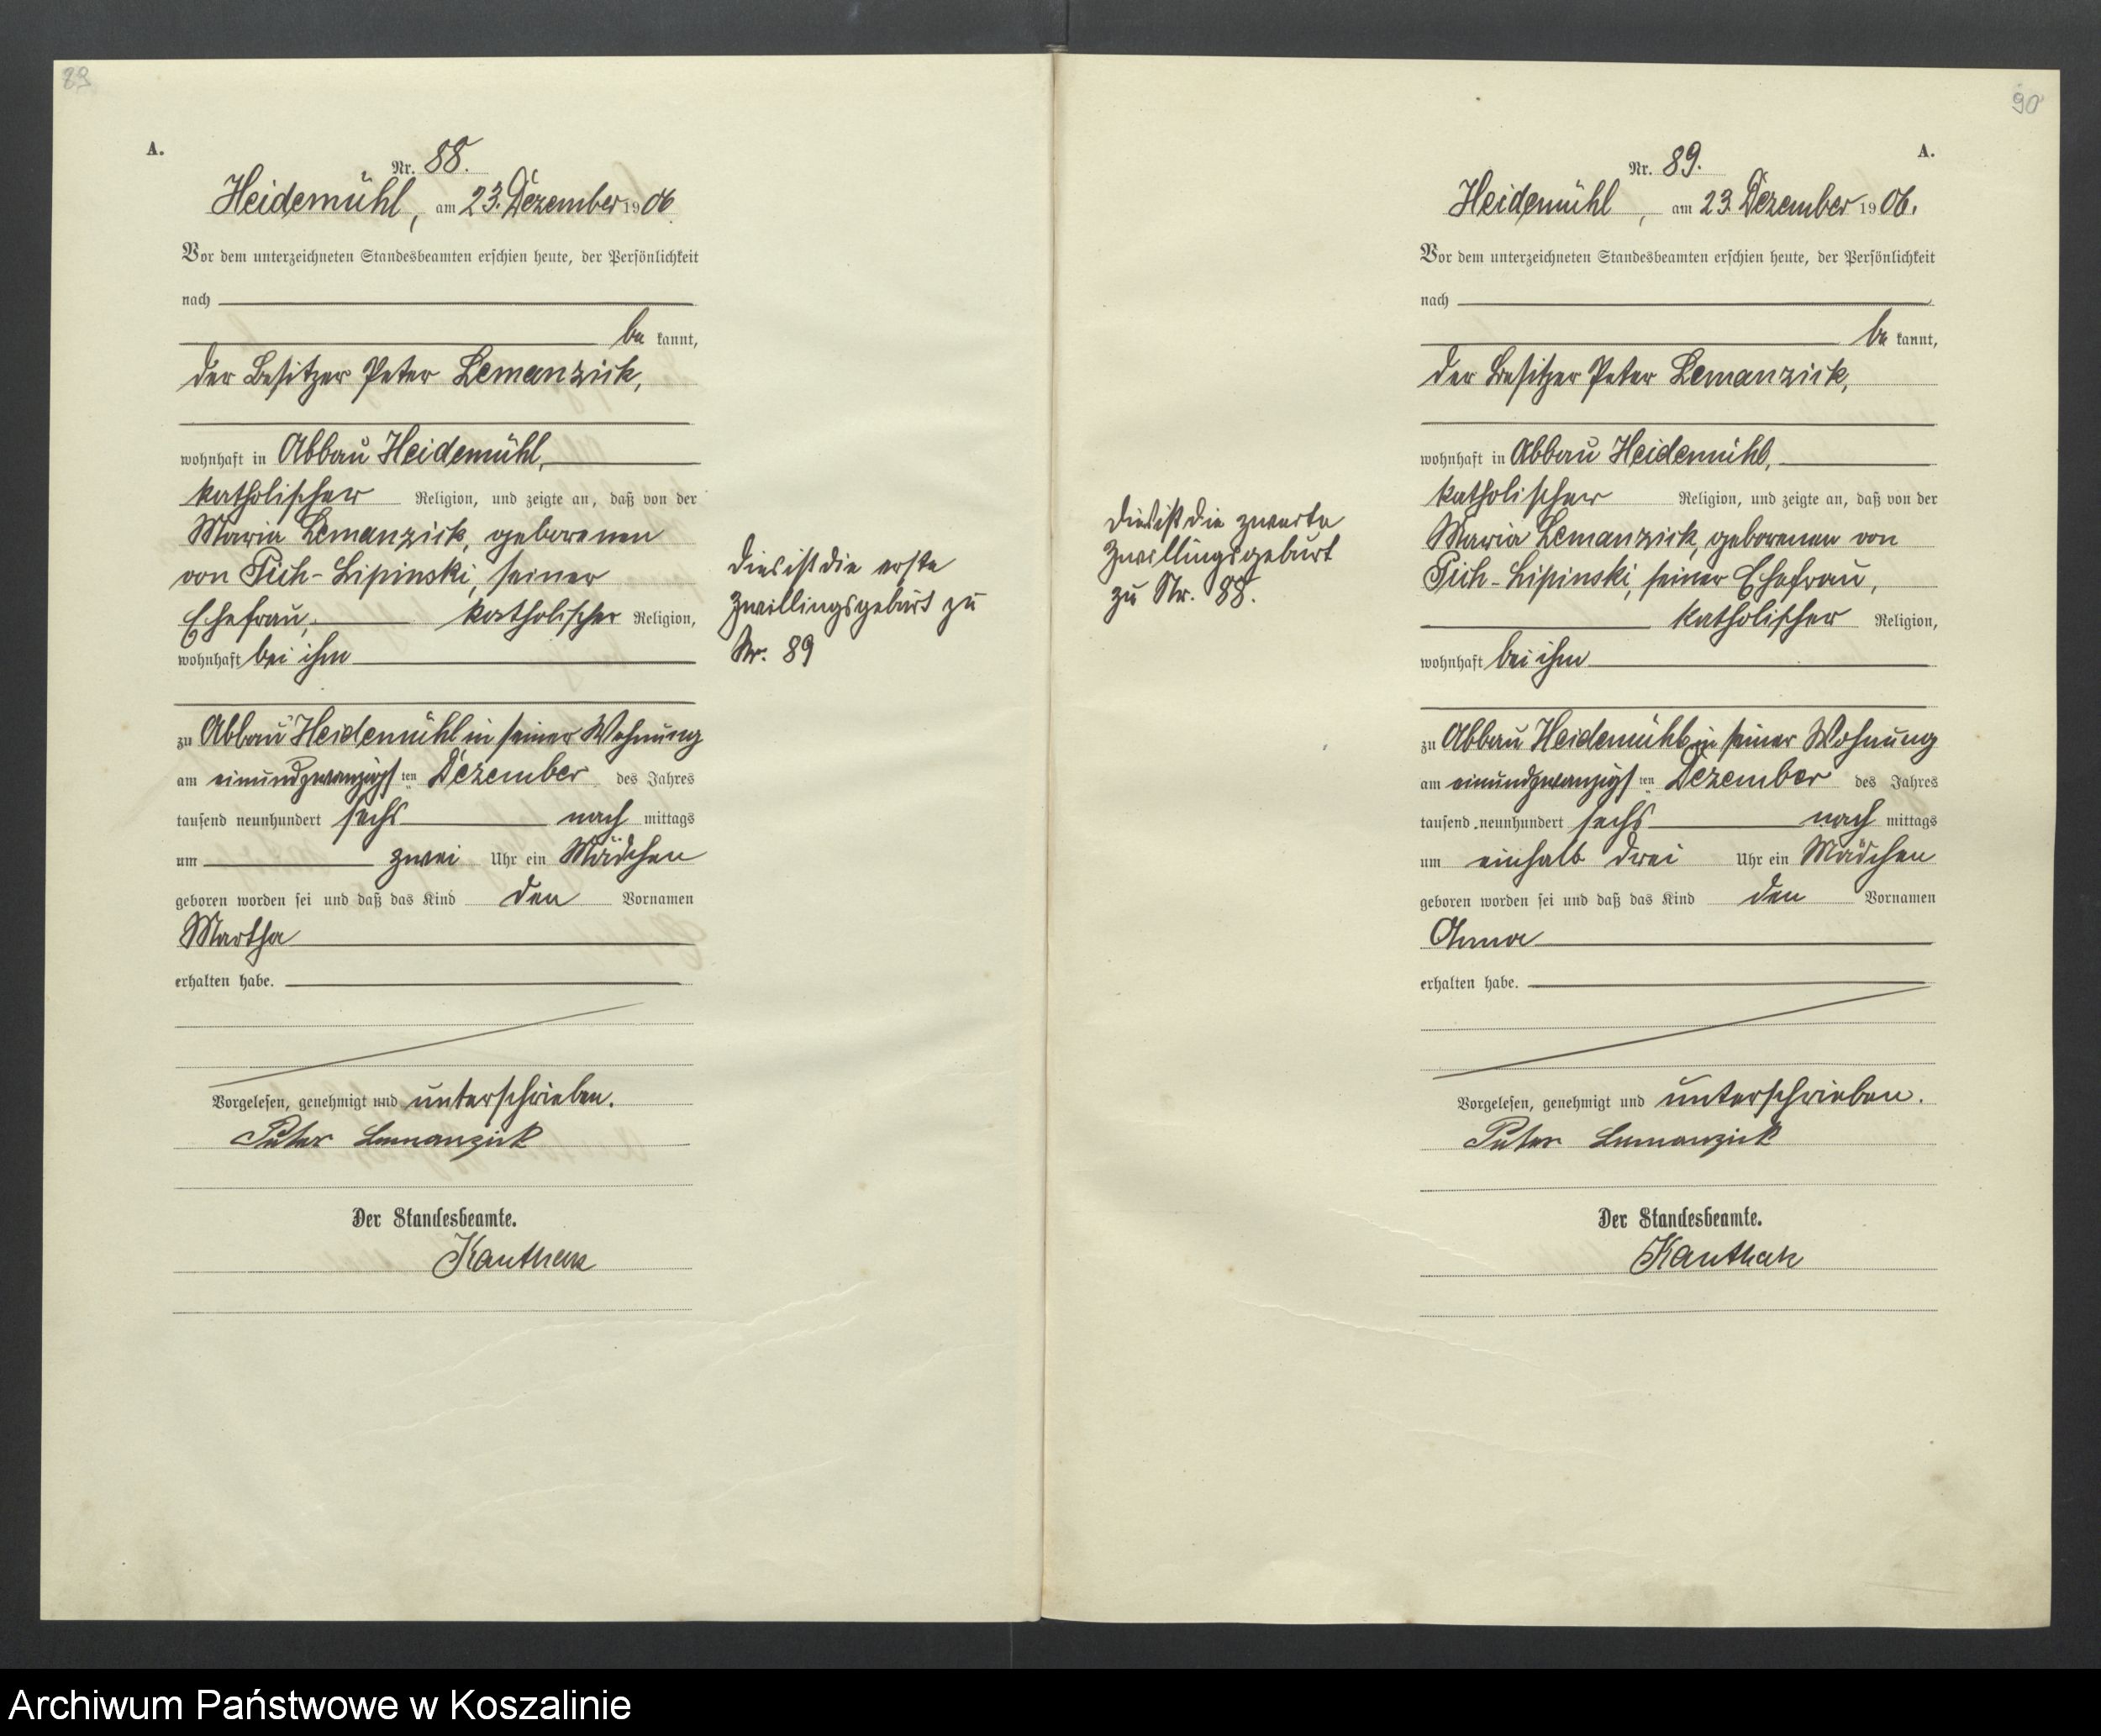 89
A.
Nr. 88.
Heidemühl, am 23. Dezember 1906
Vor dem unterzeichneten Standesbeamten erschien heute, der Persönlichkeit
nach
be kannt,
der Besitzer Peter Lemanzick,
wohnhaft in Abbau Heidemühl,
katholischer Religion, und zeigte an, daß von der
Maria Lemanzick, geborenen
von Pich-Lipinski, seiner
Ehefrau, katholischer Religion,
wohnhaft bei ihm
zu Abbau Heidemühl in seiner Wohnung
am einundzwanzigsten Dezember des Jahres
tausend neunhundert sechs nach mittags
um zwei Uhr ein Mädchen
geboren worden sei und daß das Kind den Vornamen
Martha
erhalten habe.
Vorgelesen, genehmigt und unterschrieben.
Peter Lemanzick
Der Standesbeamte.
Kauthak
Dies ist die erste
Zwillingsgeburt zu
Nr. 89
90
A.
Nr. 89.
Heidemühl, am 23. Dezember 1906.
Vor dem unterzeichneten Standesbeamten erschien heute, der Persönlichkeit
nach
be kannt,
der Besitzer Peter Lemanzick,
wohnhaft in Abbau Heidemühl,
katholischer Religion, und zeigte an, daß von der
Maria Lemanzick, geborenen von
Pich-Lipinski, seiner Ehefrau,
katholischer Religion,
wohnhaft bei ihm
zu Abbau Heidemühl in seiner Wohnung
am einundzwanzigsten Dezember des Jahres
tausend neunhundert sechs nach mittags
um einhalb drei Uhr ein Mädchen
geboren worden sei und daß das Kind den Vornamen
Anna
erhalten habe.
Vorgelesen, genehmigt und unterschrieben.
Peter Lemanzick
Der Standesbeamte.
Kauthak
Dies ist die zweite
Zwillingsgeburt
zu Nr. 88.
Archiwum Państwowe w Koszalinie